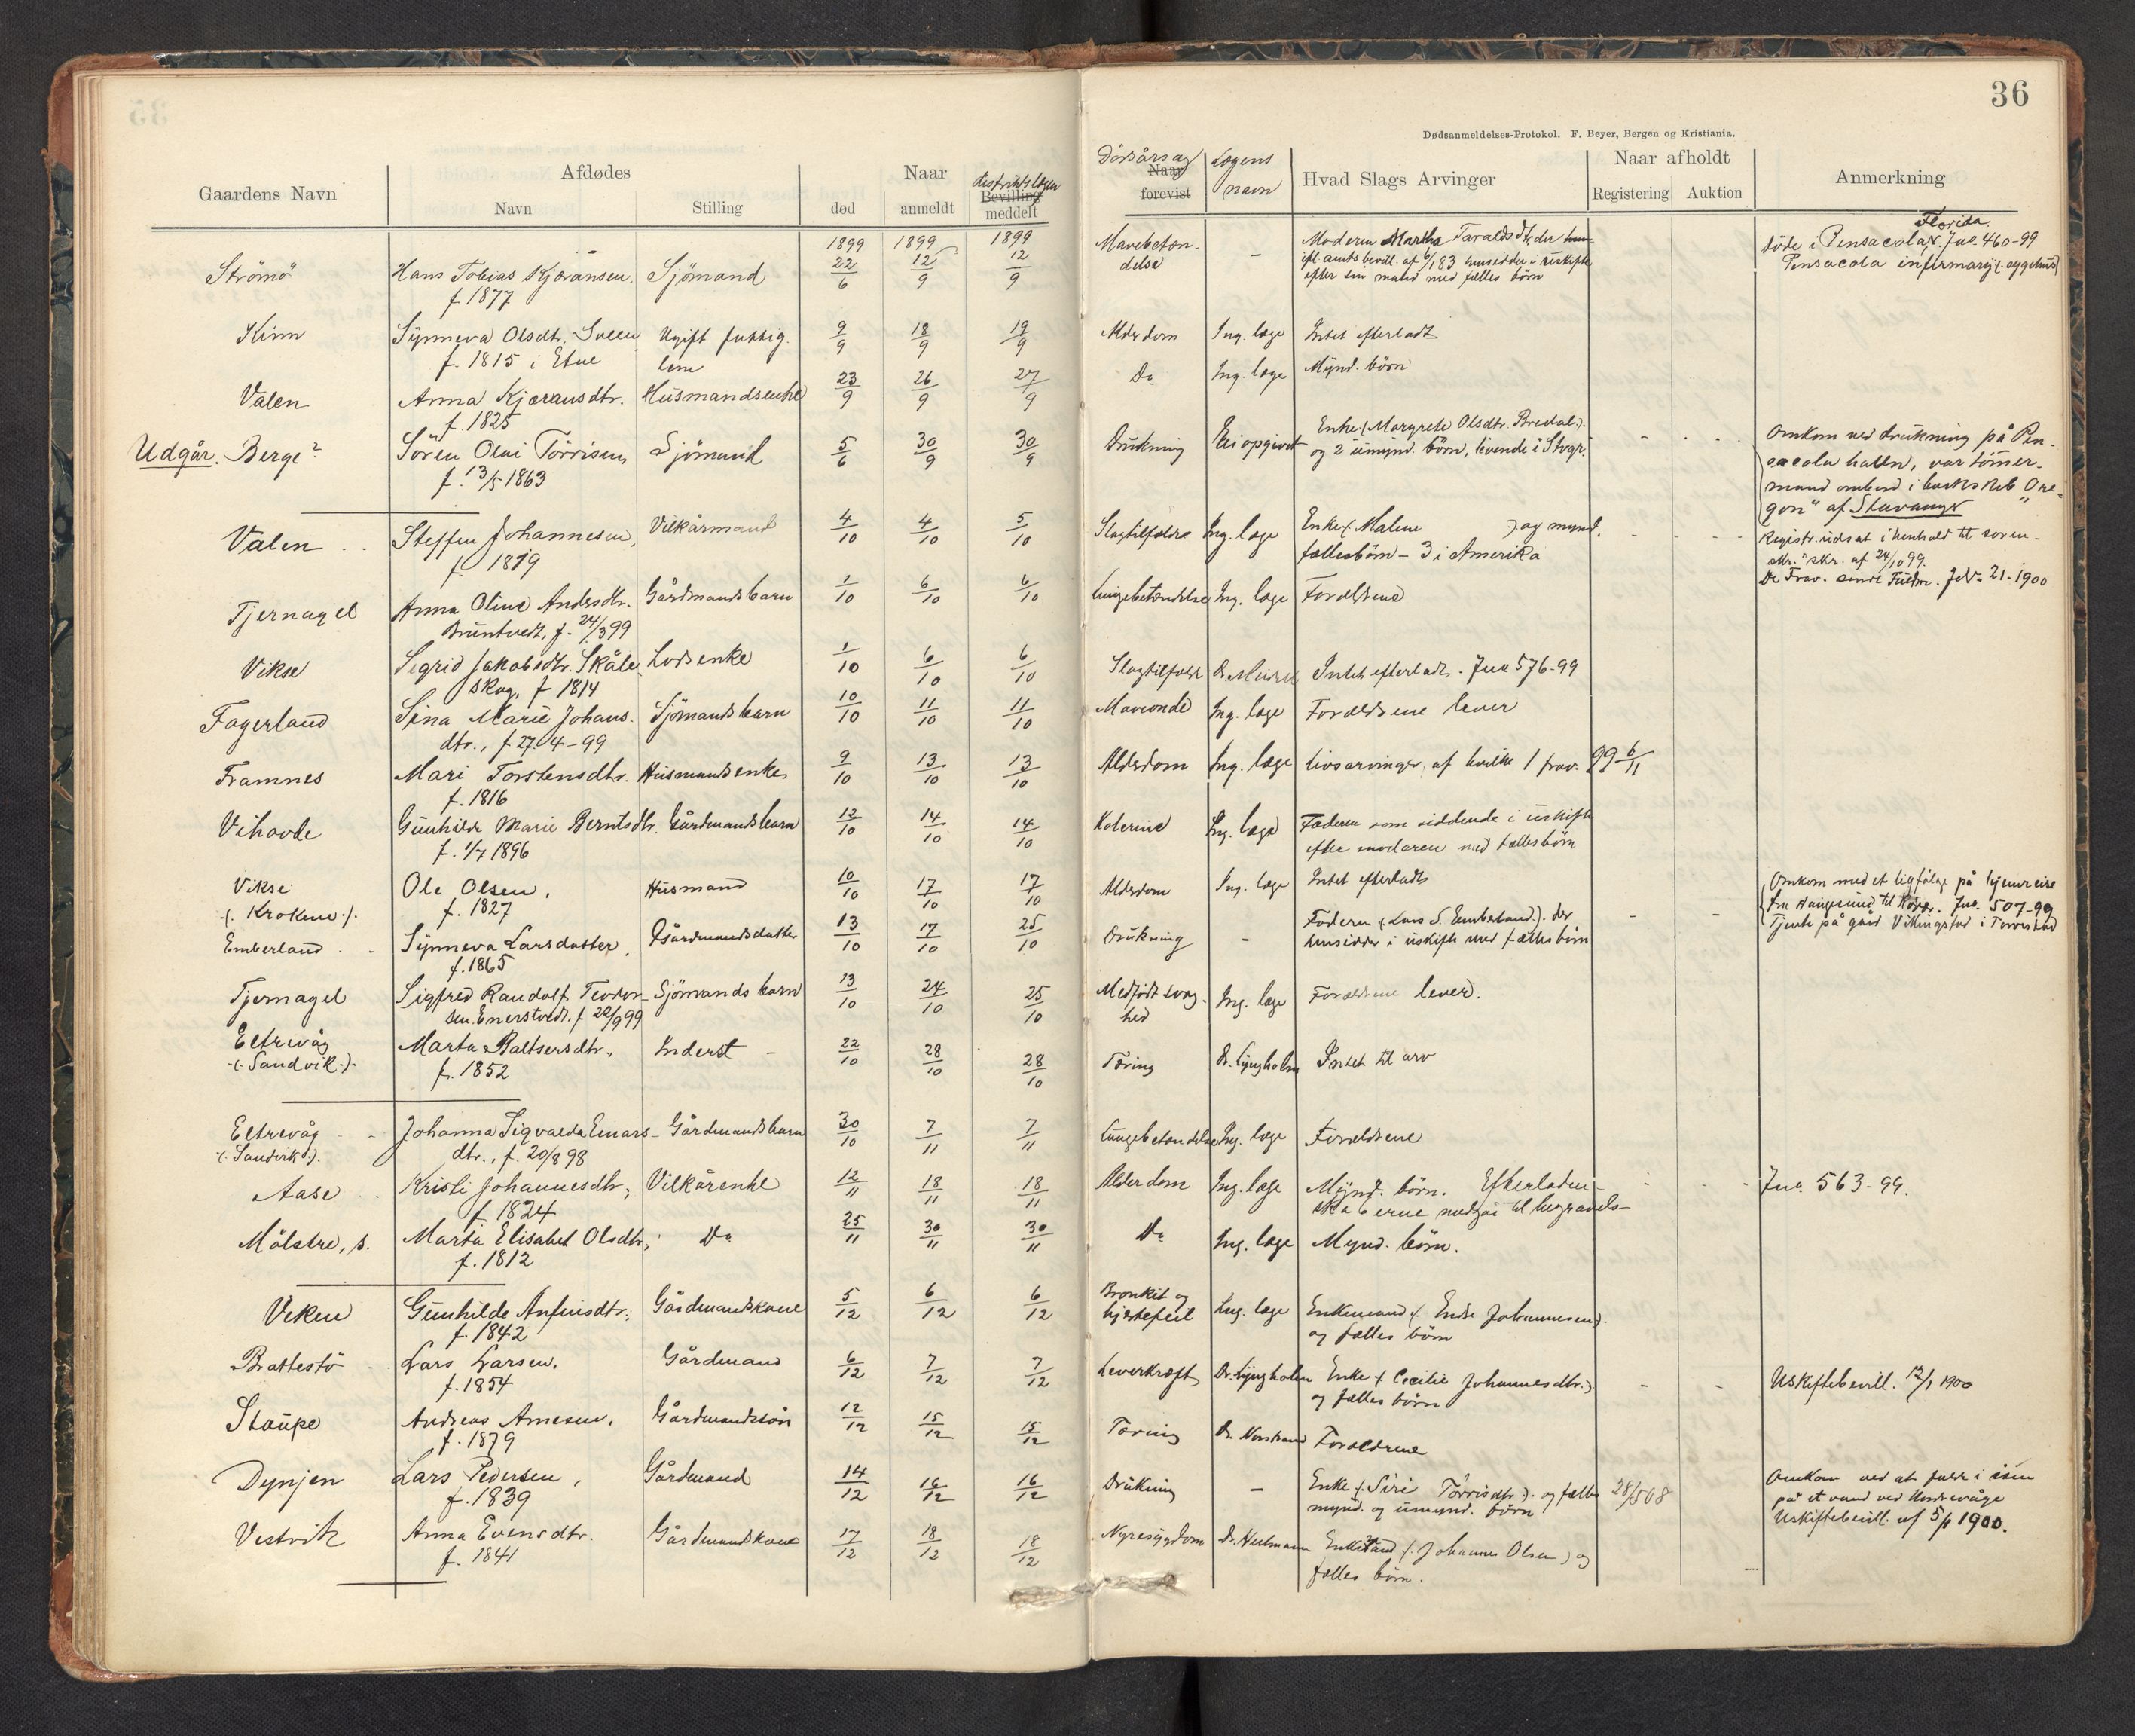 36
Dødsanmeldelses-Protokol. F. Beyer, Bergen og Kristiania.
Gaardens Navn
Afdødes
Navn
Stilling
Naar
død
anmeldt
distriktslægen
Bevilling
meddelt
Dødsårsag
Naar
forevist
Lægens navn
Hvad Slags Arvinger
Naar afholdt
Registering
Auktion
Anmerkning
1899 1899 1899
Strömö Hans Tobias Kjæransen. Sjömand 22/6 12/9 12/9 Mavebetæn- – Moderen Martha Taraldsdtr, der
f 1877 delse ifl. amts bevill. af 6/1 83 hensidder i uskifte
efter sin mand med fælles börn
Florida.
döde i Pensacola, Jno. 460-99
Pensacola infirmary (: sygehus)
Kinn Synneva Olsdtr. Ugift fattig- 9/9 18/9 19/9 Alderdom Ing. læge Intet efterladt
f. 1815 i Etne lem
Valen Anna Kjæransdtr. Husmandsenke 23/9 26/9 27/9 Do Ing. læge Mynd. börn
f. 1825
Udgår. Berge? Sören Olai Törrisen Sjömand 5/6 30/9 30/9 Drukning Ei opgivet Enke (Margrete Olsdtr. Bredal:)
f. 13/5 1863 og 2 umynd. börn, levende i Stvgr.
Omkom ved drukning på Pen-
sacola havn, var tömmer-
mand ombord i barkskib „Ore-
gon" af Stavanger
Valen Steffen Johannesen, Vilkårmand 4/10 4/10 5/10 Slagtilfælde Ing. læge Enke (: Malene :) og mynd.
f. 1819 fællesbörn – 3 i Amerika
Registr. udsat i henhold til soren-
skr.' skr. af 24/10 99.
Tjernagel Anna Oline Andersdtr. Gårdmandsbarn 1/10 6/10 6/10 Lungebetændelse Ing. læge Forældrene
f. 24/3 99
Vikse Sigrid Jakobsdtr. Skåle- Lodsenke 1/10 6/10 6/10 Slagtilfæld Intet efterladt. Jno 576-99
skog, f 1814
Fagerland Sina Marie Johans- Sjömandsbarn 10/10 11/10 11/10 Maveonde Ing. læge Forældrene lever
dtr., f 27. 4 – 99
Framnes Mari Torstensdtr. Husmandsenke 9/10 13/10 13/10 Alderdom Ing. læge Livsarvinger, af hvilke 1 frav. 99 6/11
f. 1816
Vihovde Gunhilde Marie Berntsdtr. Gårdmandsbarn 12/10 14/10 14/10 Kolerine Ing. læge Faderen som siddende i uskifte
f. 1/7 1896 efter moderen med fællesbörn
Vikse Ole Olsen, Husmand 10/10 17/10 17/10 Alderdom Ing. læge Intet efterladt
(: Krokene :) f. 1827
Emberland Synneva Larsdatter, Gårdmandsdatter 13/10 17/10 25/10 Drukning – Faderen (Lars S. Emberland:) der
f. 1865 hensidder i uskifte med fælles börn
Omkom med et ligfølge på hjemreise
fra Haugesund til Jno. 507-99
Tjente på gård Vikingstad i Torvestad
Tjernagel Sigfred Randolf Teodor- Sjömands barn 13/10 24/10 25/10 Medfödt svag- Ing. læge Forældrene lever.
sen Enerstvedt. f 22/9 99 hed
Eltrevåg Marta Baltsersdtr. Inderst – 22/10 28/10 28/10 Tæring Dr. Lyngholm Intet til arv
(: Sandvik :) f. 1852
Eltrevåg Johanna Sigvalda Einars- Gårdmandsbarn 30/10 7/11 7/11 Lungebetændelse Ing. læge Forældrene
(: Sandvik :) dtr., f. 20/8 98
Aase Kristi Johannesdtr, Vilkårenke 12/11 18/11 18/11 Alderdom Ing. læge Mynd. börn. Efterladen- Jno. 563-99.
f 1824 skaberne medgår til begravels-
Målstre, s. Marta Elisabet Olsdtr, Do 25/11 30/11 30/11 Do Ing. læge Mynd. börn.
f. 1812
Viken Gunhilde Anfinsdtr, Gårdmandskone 5/12 6/12 6/12 Bronkit og Ing. læge Enkemand (: Endre Johannesen:)
f. 1842 hjertefeil og fælles börn
Brattestö Lars Larsen. Gårdmand 6/12 7/12 7/12 Leverkræft Dr. Lyngholm Enke (: Cecilie Johannesdtr.:) – – Uskiftebevill. 12/1 1900
f. 1854 og fælles börn
Staupe Andreas Arnesen. Gårdmandssön 12/12 15/12 15/12 Tæring Forældrene
f. 1879
Dynjen Lars Pedersen, Gårdmand 14/12 16/12 16/12 Drukning – Enke (: Siri Törrisdtr:) og fælles 28/5 08
f. 1839 mynd. og umynd. börn
Omkom ved at falde i isen
på et vand ved
Uskiftebevill. af 5/1 1900.
Vestvik Anna Evensdtr. Gårdmandskone 17/12 18/12 18/12 Nyresygdom Enkemand (: Johannes Olsen) og
f. 1841 fælles börn.